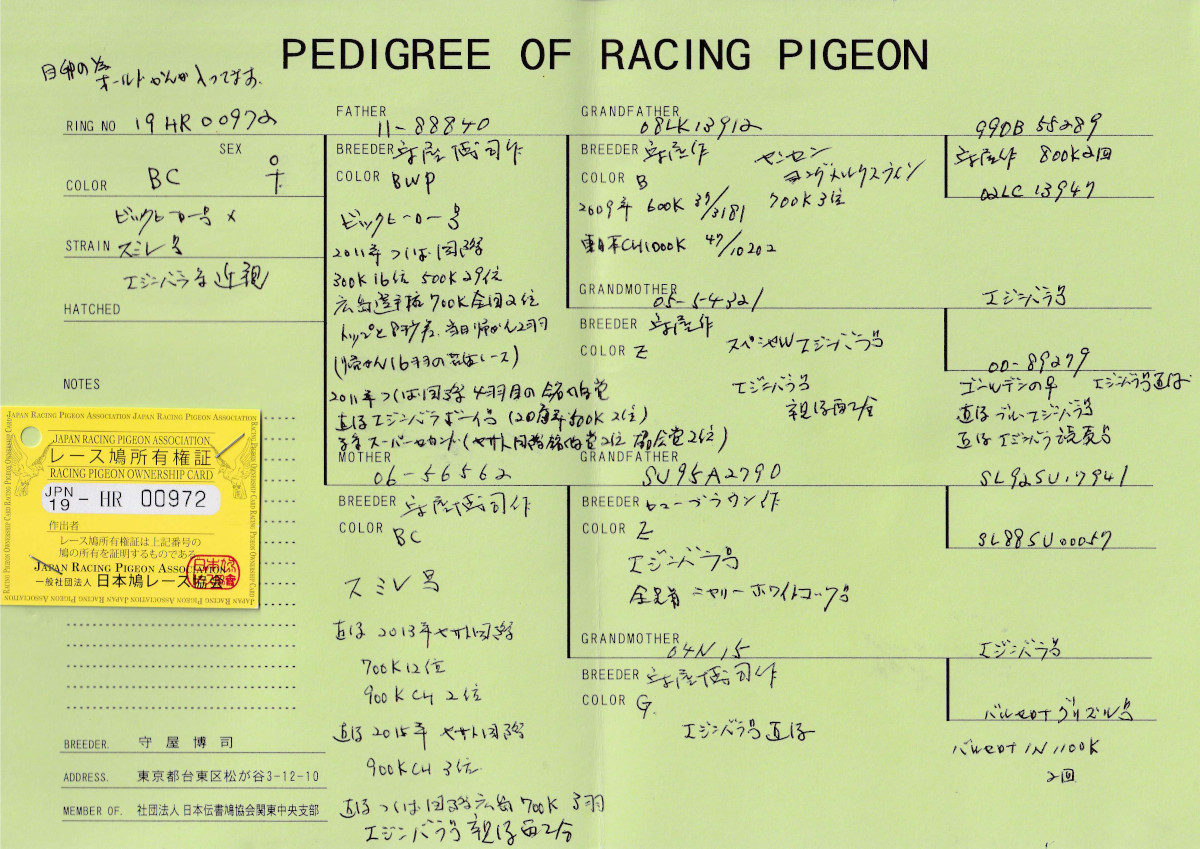 PEDIGREE OF RACING PIGEON
オールドかんが入ってます。
RING NO 19 HR 00972
SEX ♀
COLOR BC
ビックヒーロー号 ×
STRAIN スミレ号
エジンバラ号 近親
HATCHED
NOTES
JAPAN RACING PIGEON ASSOCIATION
レース鳩所有権証
RACING PIGEON OWNERSHIP CARD
JPN
19 - HR 00972
作出者
レース鳩所有権証は上記番号の
鳩の所有を証明するものである。
JAPAN RACING PIGEON ASSOCIATION
一般社団法人 日本鳩レース協会
BREEDER. 守屋博司
ADDRESS. 東京都台東区松が谷3-12-10
MEMBER OF. 社団法人 日本伝書鳩協会関東中央支部
FATHER
11-88840
BREEDER 守屋博司作
COLOR BWP
ビックヒーロー号
2011年 つくば国際
300K 16位 500K 29位
700K 全国2位
2011年 つくば国際 4羽目の
直仔 エジンバラボーイ号
MOTHER
06-56562
BREEDER 守屋博司作
COLOR BC
スミレ号
直仔 2013年 ヤサト国際
700K 12位
900K CH 2位
直仔 2015年 ヤサト国際
900K CH 3位
直仔 つくば国際 広島 700K 3羽
エジンバラ号 親仔
GRANDFATHER
08LK13912
BREEDER 守屋作
COLOR B
ヤンセン
2009年 600K 37/3181 700K 3位
東日本CH1000K 47/10202
GRANDMOTHER
05-5-4321
BREEDER 守屋作
COLOR Z
スペシャルWエジンバラ号
エジンバラ号
GRANDFATHER
SU95A2790
BREEDER ヒューブラウン作
COLOR Z
エジンバラ号
全兄弟 ニヤリーホワイトコック号
GRANDMOTHER
04N15
BREEDER 守屋博司作
COLOR G.
エジンバラ号 直仔
99DB 55289
守屋作 800K 2回
02LC 13947
エジンバラ号
00-89279
ゴールデンの卆 エジンバラ号直仔
直仔 ブルーエジンバラ号
直仔 エジンバラ
SL92SU17941
SL88SU00057
エジンバラ号
バルセロナグリズル号
バルセロナ IN 1100K
2回